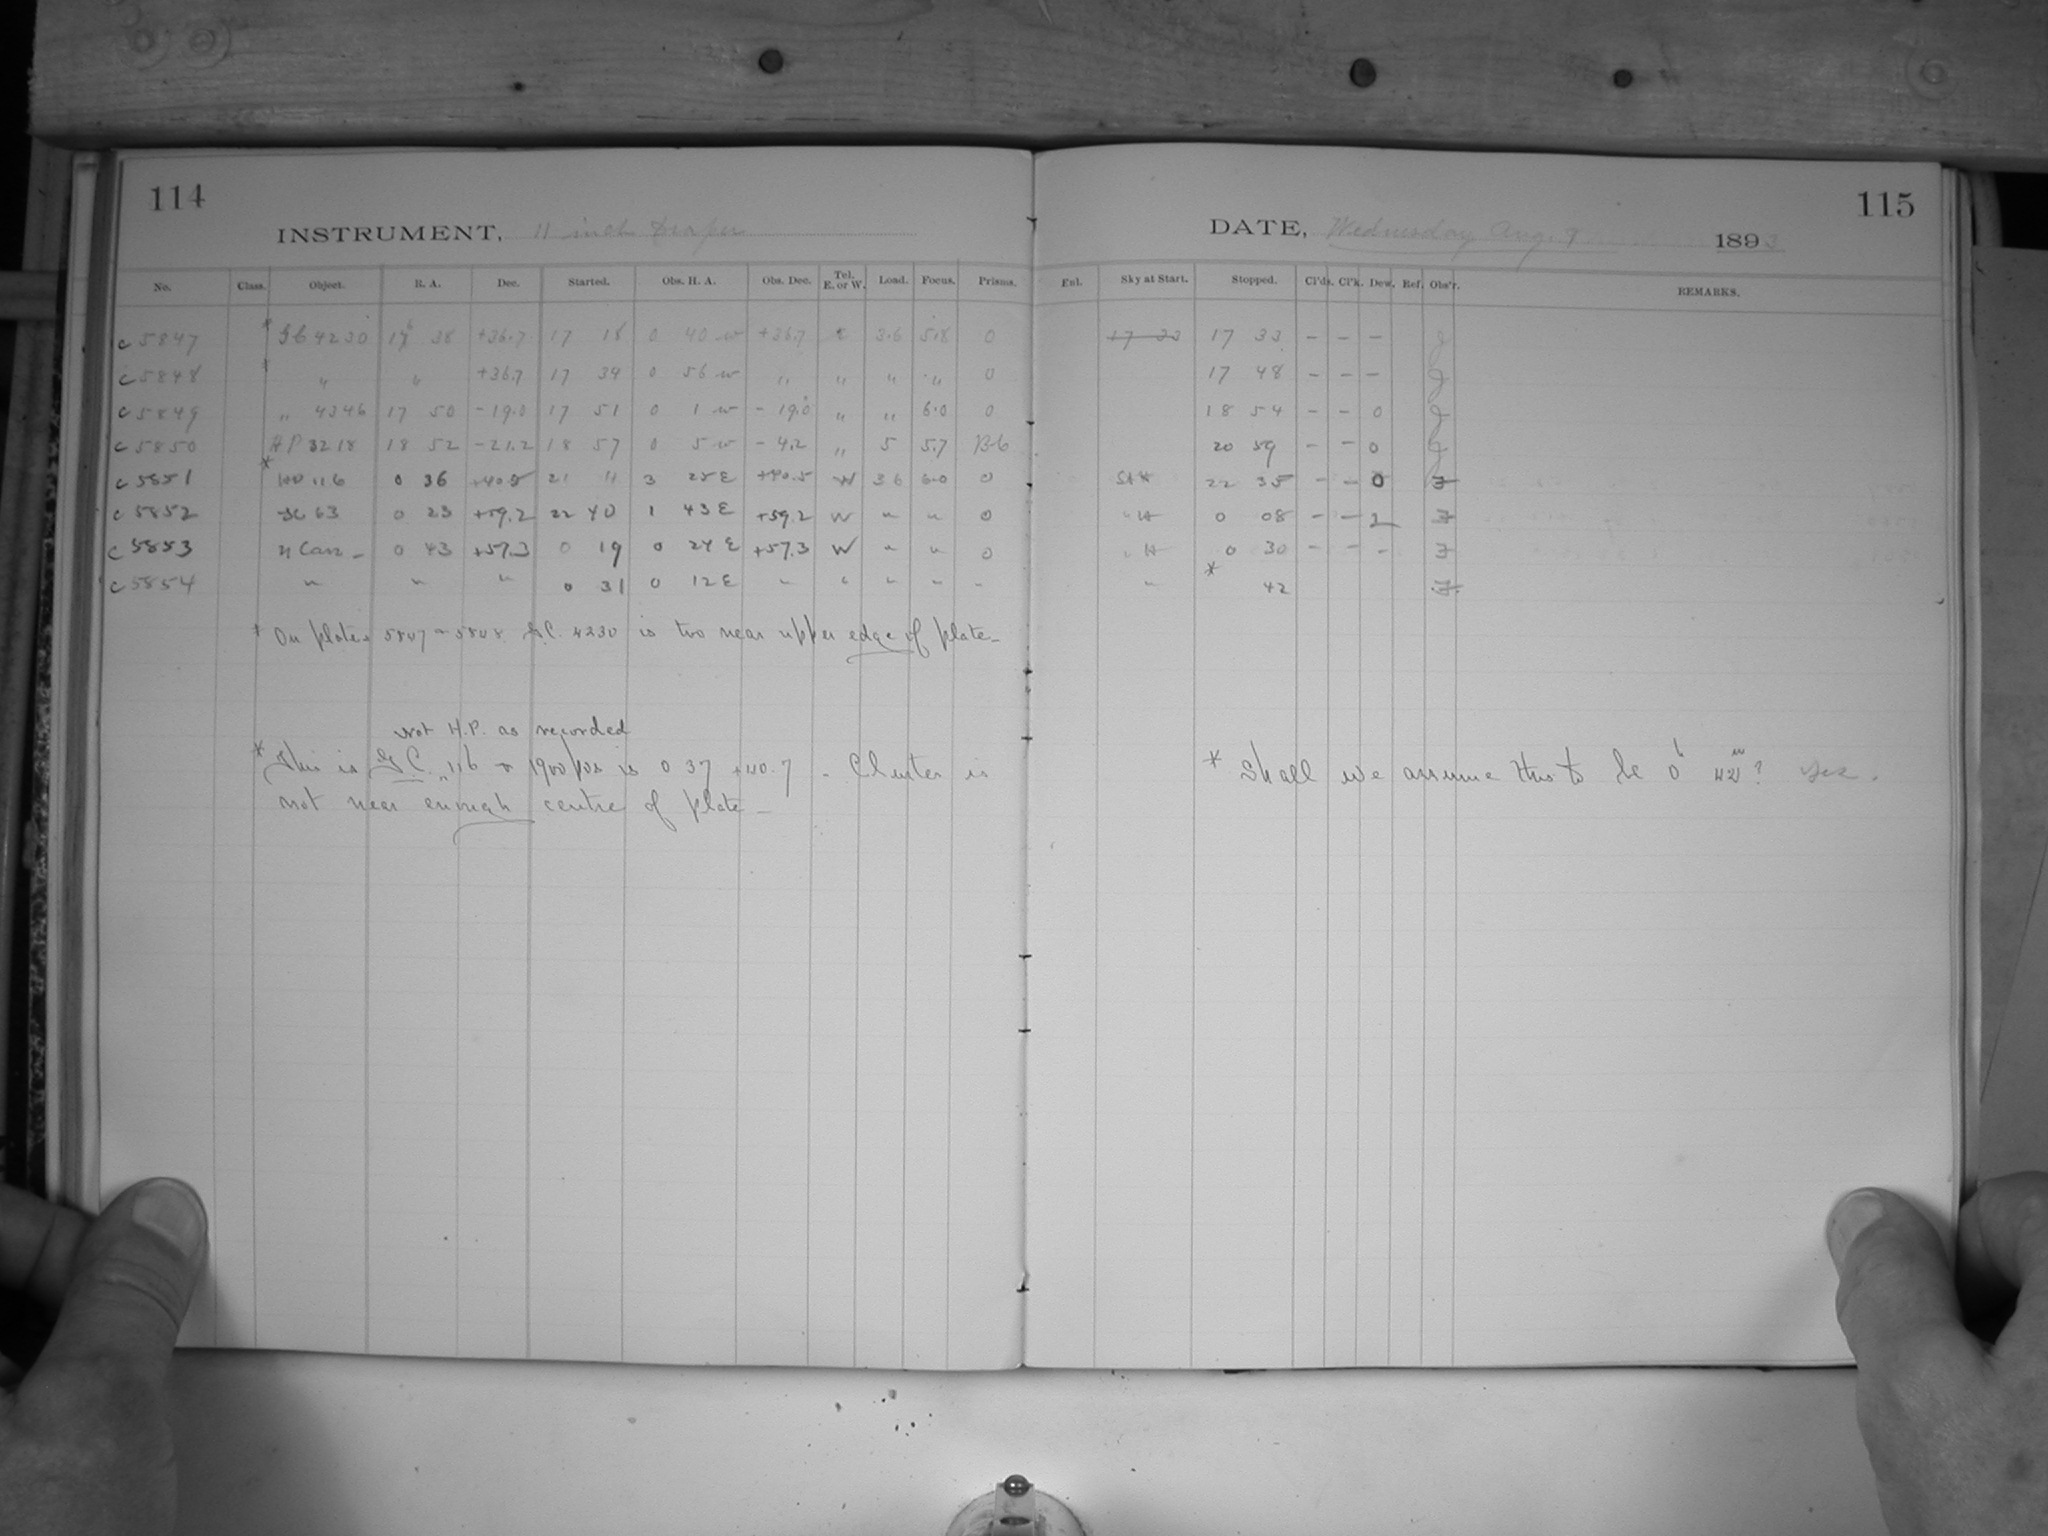 114
INSTRUMENT, 11 inch Draper
No. Class. Object. R. A. Dec. Started. Obs. H. A. Obs. Dec. Tel. E. or W. Load. Focus. Prisms.
c 5847 * 4230 38 +36.7 17 18 0 40 w +36.7 3.6 5.8 0
c 5848 * " " +36.7 17 34 0 56 w " " " " 0
c 5849 " 4346 17 50 -19.0 17 51 0 1 w -19.0 " " 6.0 0
c 5850 HP 3218 18 52 -21.2 18 57 0 5 w -4.2 " 5 5.7 B-6
c 5851 * 116 0 36 +40.5 21 11 3 25 E +40.5 W 3 6 6.0 0
c 5852 63 0 23 +59.2 22 40 1 43 E +59.2 W " " 0
c 5853 η Cass - 0 43 +57.3 0 19 0 24 E +57.3 W " " 0
c 5854 " " " 0 31 0 12 E " " " " -
* On plates 5847 & 5848 G.C. 4230 is too near upper edge of plate -
not H.P. as recorded
* This is G.C. 116 & 1900 pos is 0 37 +40.7 - Cluster is
not near enough centre of plate -
115
DATE, Wednesday Aug. 9 1893
Enl. Sky at Start. Stopped. Cl'ds. Cl'k. Dew. Ref. Obs'r. REMARKS.
17 33 17 33 - - - J
17 48 - - - J
18 54 - - 0 J
20 59 - - 0 J
22 35 - - 0
0 08 - - 2
0 30 - - -
" * 42
* Shall we assume this to be 0h 42m? Yes.